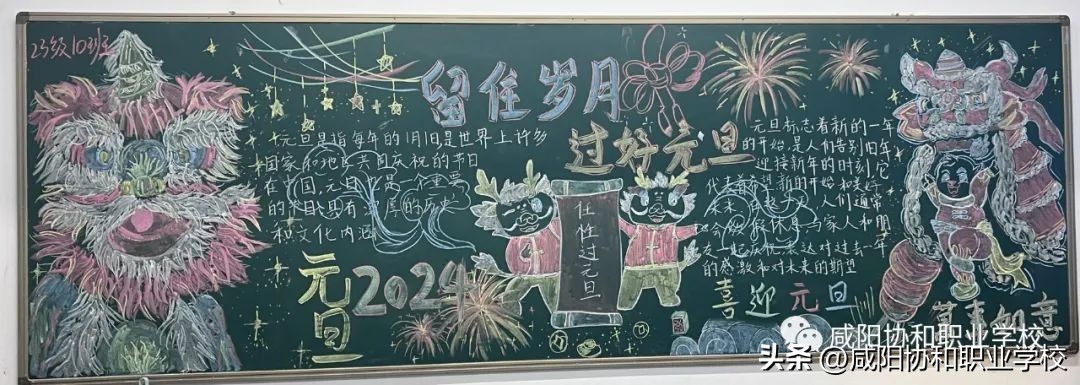 23级10班
留住岁月
过好元旦
元旦是指每年的1月1日是世界上许多
国家和地区共同庆祝的节日
在中国,元旦也是一个重要
的节日具有深厚的历史
和文化内涵
元旦
2024
任任过元旦
元旦标志着新的一年
的开始,是人们告别旧年
迎接新年的时刻,它
代表着希望新的开始和美好
未来 人们通常
会放假休息与家人和朋
友一起庆祝表达对过去一年
的感激和对未来的期望
喜迎元旦
如意
咸阳协和职业学校
头条@咸阳协和职业学校